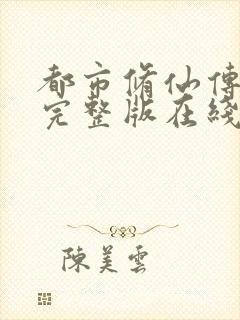 都市脩仙傳
完整版在綫
陳美雲